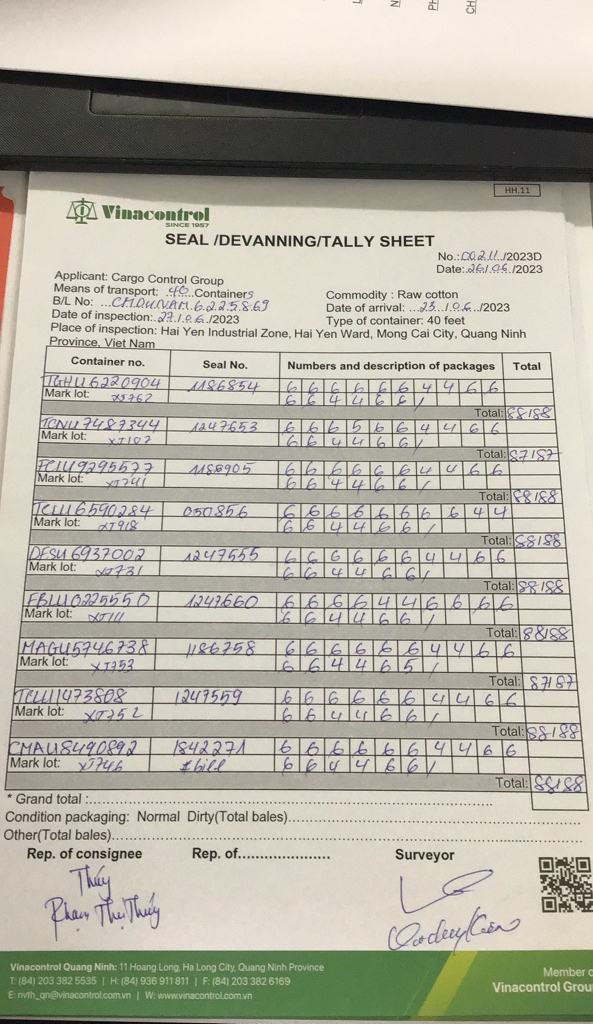 HH.11
Vinacontrol
SINCE 1957
SEAL /DEVANNING/TALLY SHEET
No.:00211/2023D
Date:26/06/2023
Applicant: Cargo Control Group
Means of transport: 40 Containers
Commodity : Raw cotton
B/L No: CMDUVAM6225869
Date of arrival: 23/06/2023
Date of inspection: 27/06/2023
Type of container: 40 feet
Place of inspection: Hai Yen Industrial Zone, Hai Yen Ward, Mong Cai City, Quang Ninh
Province, Viet Nam
Container no. Seal No. Numbers and description of packages Total
TGHU6220904 1186854 6 6 6 6 6 6 4 4 6 6
Mark lot: XJ762 6 6 4 4 6 6 /
Total: 88/88
TCNU7487344 1247653 6 6 6 5 6 6 4 4 6 6
Mark lot: XJ107 6 6 4 4 6 6 /
Total: 87/87
FCIU9295577 1186905 6 6 6 6 6 6 4 4 6 6
Mark lot: XJ741 6 6 4 4 6 6 /
Total: 88/88
TCLU6590284 050856 6 6 6 6 6 6 6 6 4 4
Mark lot: XJ918 6 6 4 4 6 6 /
Total: 88/88
DFSU6937002 1247555 6 6 6 6 6 6 4 4 6 6
Mark lot: XJ731 6 6 4 4 6 6 /
Total: 88/88
FBLU0225550 1247660 6 6 6 6 4 4 6 6 6 6
Mark lot: XJ111 6 6 4 4 6 6 /
Total: 88/88
MAGU5746738 1186758 6 6 6 6 6 6 4 4 6 6
Mark lot: XJ753 6 6 4 4 6 5 /
Total: 87/87
TCLU1473808 1247559 6 6 6 6 6 6 4 4 6 6
Mark lot: XJ752 6 6 4 4 6 6 /
Total: 88/88
CMAU8490892 1842271 6 6 6 6 6 6 4 4 6 6
Mark lot: XJ746 ≠bill 6 6 4 4 6 6 /
Total: 88/88
* Grand total :
Condition packaging: Normal Dirty(Total bales)
Other(Total bales)
Rep. of consignee Rep. of Surveyor
Thúy
Phạm Thị Thúy
Vinacontrol Quang Ninh: 11 Hoang Long, Ha Long City, Quang Ninh Province
T: (84) 203 382 5535 | H: (84) 936 911 811 | F: (84) 203 382 6169
E: nvth_qn@vinacontrol.com.vn | W: www.vinacontrol.com.vn
Member o
Vinacontrol Grou